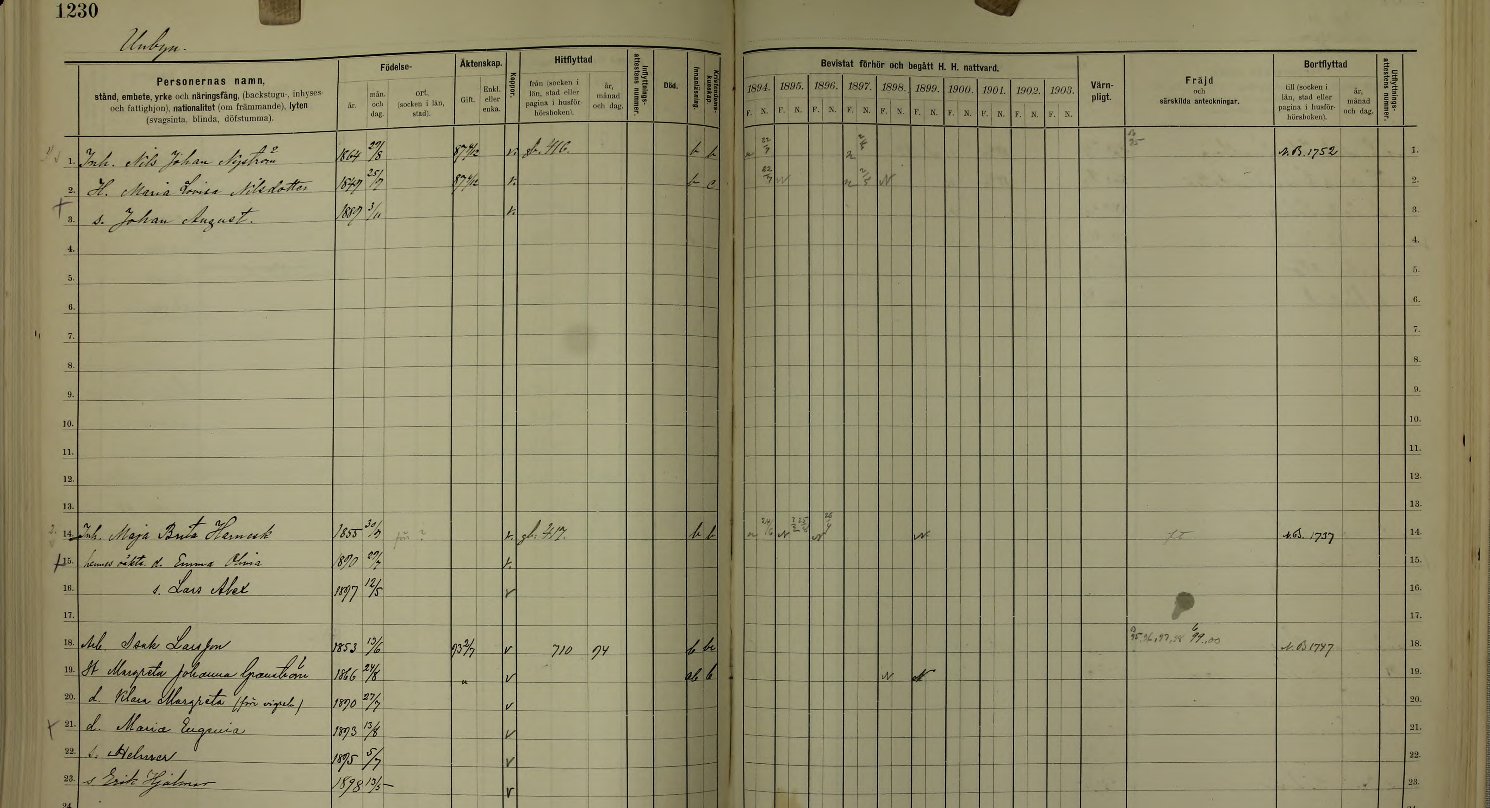 1230
Unbyn.
Personernas namn,
stånd, embete, yrke och näringsfång, (backstugu-, inhyses-
och fattighjon), nationalitet (om främmande), lyten
(svagsinta, blinda, döfstumma).
Födelse-
år. mån. och dag. ort. (socken i län, stad).
Äktenskap.
Gift. Enkl. eller enka.
Koppor.
Hitflyttad
från (socken i län, stad eller pagina i husförhörsboken). år, månad och dag.
Inflyttnings-attestens nummer.
Död.
Innanläsning.
Kristendoms-kunskap.
Bevistat förhör och begått H. H. nattvard.
1894. 1895. 1896. 1897. 1898. 1899. 1900. 1901. 1902. 1903.
F. N. F. N. F. N. F. N. F. N. F. N. F. N. F. N. F. N. F. N.
Värn-
pligt.
Fräjd
och
särskilda anteckningar.
Bortflyttad
till (socken i län, stad eller pagina i husförhörsboken). år, månad och dag.
Utflyttnings-attestens nummer.
1. Inh. Nils Johan Nyström 1864 29/8 v. 416. b b N.B. 1752 1.
2. H. Maria Lovisa Nilsdotter 1847 25/7 v. b c N N 2.
3. s. Johan August. 1887 3/11 v. 3.
4. 4.
5. 5.
6. 6.
7. 7.
8. 8.
9. 9.
10. 10.
11. 11.
12. 12.
13. 13.
14. Inh. Maja Brita Harnesk 1855 30/7 v. 417. b b N N N N.B. 1737 14.
15. hennes oäkta d. Emma Olivia 1890 29/7 v. 15.
16. s. Lars Alex 1897 12/5 v 16.
17. 17.
18. Arb. Isak Larsson 1853 13/6 93 2/7 v 710 94 b 95, 96, 97, 98 99, 00 N.B 1747 18.
19. H Margreta Johanna Granström 1866 24/8 " v ab b N N 19.
20. d. Klara Margreta (före vigseln) 1890 27/7 v 20.
21. d. Maria Eugenia 1893 13/8 v 21.
22. s. Helmer 1895 5/7 v 22.
23. s Erik Hjalmar 1898 13/5 v 23.
24. 24.